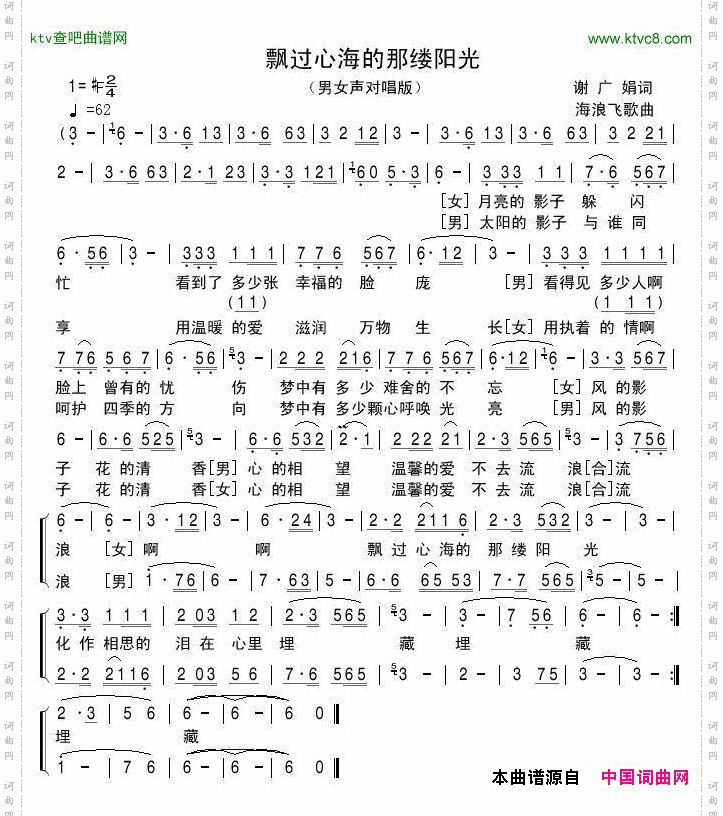 ktv查吧曲谱网
www.ktvc8.com
飘过心海的那缕阳光
（男女声对唱版）
1=♯F 2/4
♩=62
谢广娟词
海浪飞歌曲
(3 - | 6 - | 3·6 13 | 3·6 63 | 3·6 13 | 3 2 12 | 3·6 13 | 3·6 63 | 3 2 21 |
2 - | 3·6 63 | 2·1 23 | 3·3 121 | 160 5·3 | 6 - | 3 3 3 1 1 | 7·6 567 |
[女]月亮的 影子 躲 闪
[男]太阳的 影子 与 谁 同
6·56 | 3 - | 333 111 | 776 567 | 6·12 | 3 - | 333 1111 |
忙 看到了 多少张 幸福的 脸 庞 [男]看得见 多少人啊
(11) (1 11)
享 用温暖 的爱 滋润 万物 生 长[女]用执着 的 情啊
7 76 567 | 6·56 | 3 - | 222 216 | 776 567 | 6·12 | 6 - | 3·33 556 |
脸上 曾有的 忧 伤 梦中有 多少 难舍的 不 忘 [女]风 的影
呵护 四季的 方 向 梦中有 多少颗心呼唤 光 亮 [男]风 的影
6 - | 6·6 525 | 3 - | 6·6 532 | 2·1 | 222 21 | 2·3 565 | 3 756 |
子 花 的清 香[男]心 的相 望 温馨的爱 不 去 流 浪[合]流
子 花 的清 香[女]心 的相 望 温馨的爱 不 去 流 浪[合]流
6 - | 6 - | 3·12 | 3 - | 6·24 | 3 - | 2·2 2116 | 2·3 532 | 3 - | 3 - |
浪 [女]啊 啊 飘 过 心 海的 那 缕 阳 光
浪 [男]1·76 | 6 - | 7·63 | 6 - | 6·6 65 53 | 7·7 565 | 5 - | 5 - |
3·3 111 | 2 03 12 | 2·3 565 | 3 - | 3· 7 56 | 6 - | 6 - :‖
化 作 相思的 泪 在 心里 埋 藏 埋 藏
2·2 2116 | 2 03 56 | 7·6 565 | 3 - | 2 - | 3 75 | 3 - | 3 - :‖
2·3 | 5 6 | 6 - | 6 - | 6 0 ‖
埋 藏
1 - | 7 6 | 6 - | 6 - | 6 0 ‖
本曲谱源自 中国词曲网